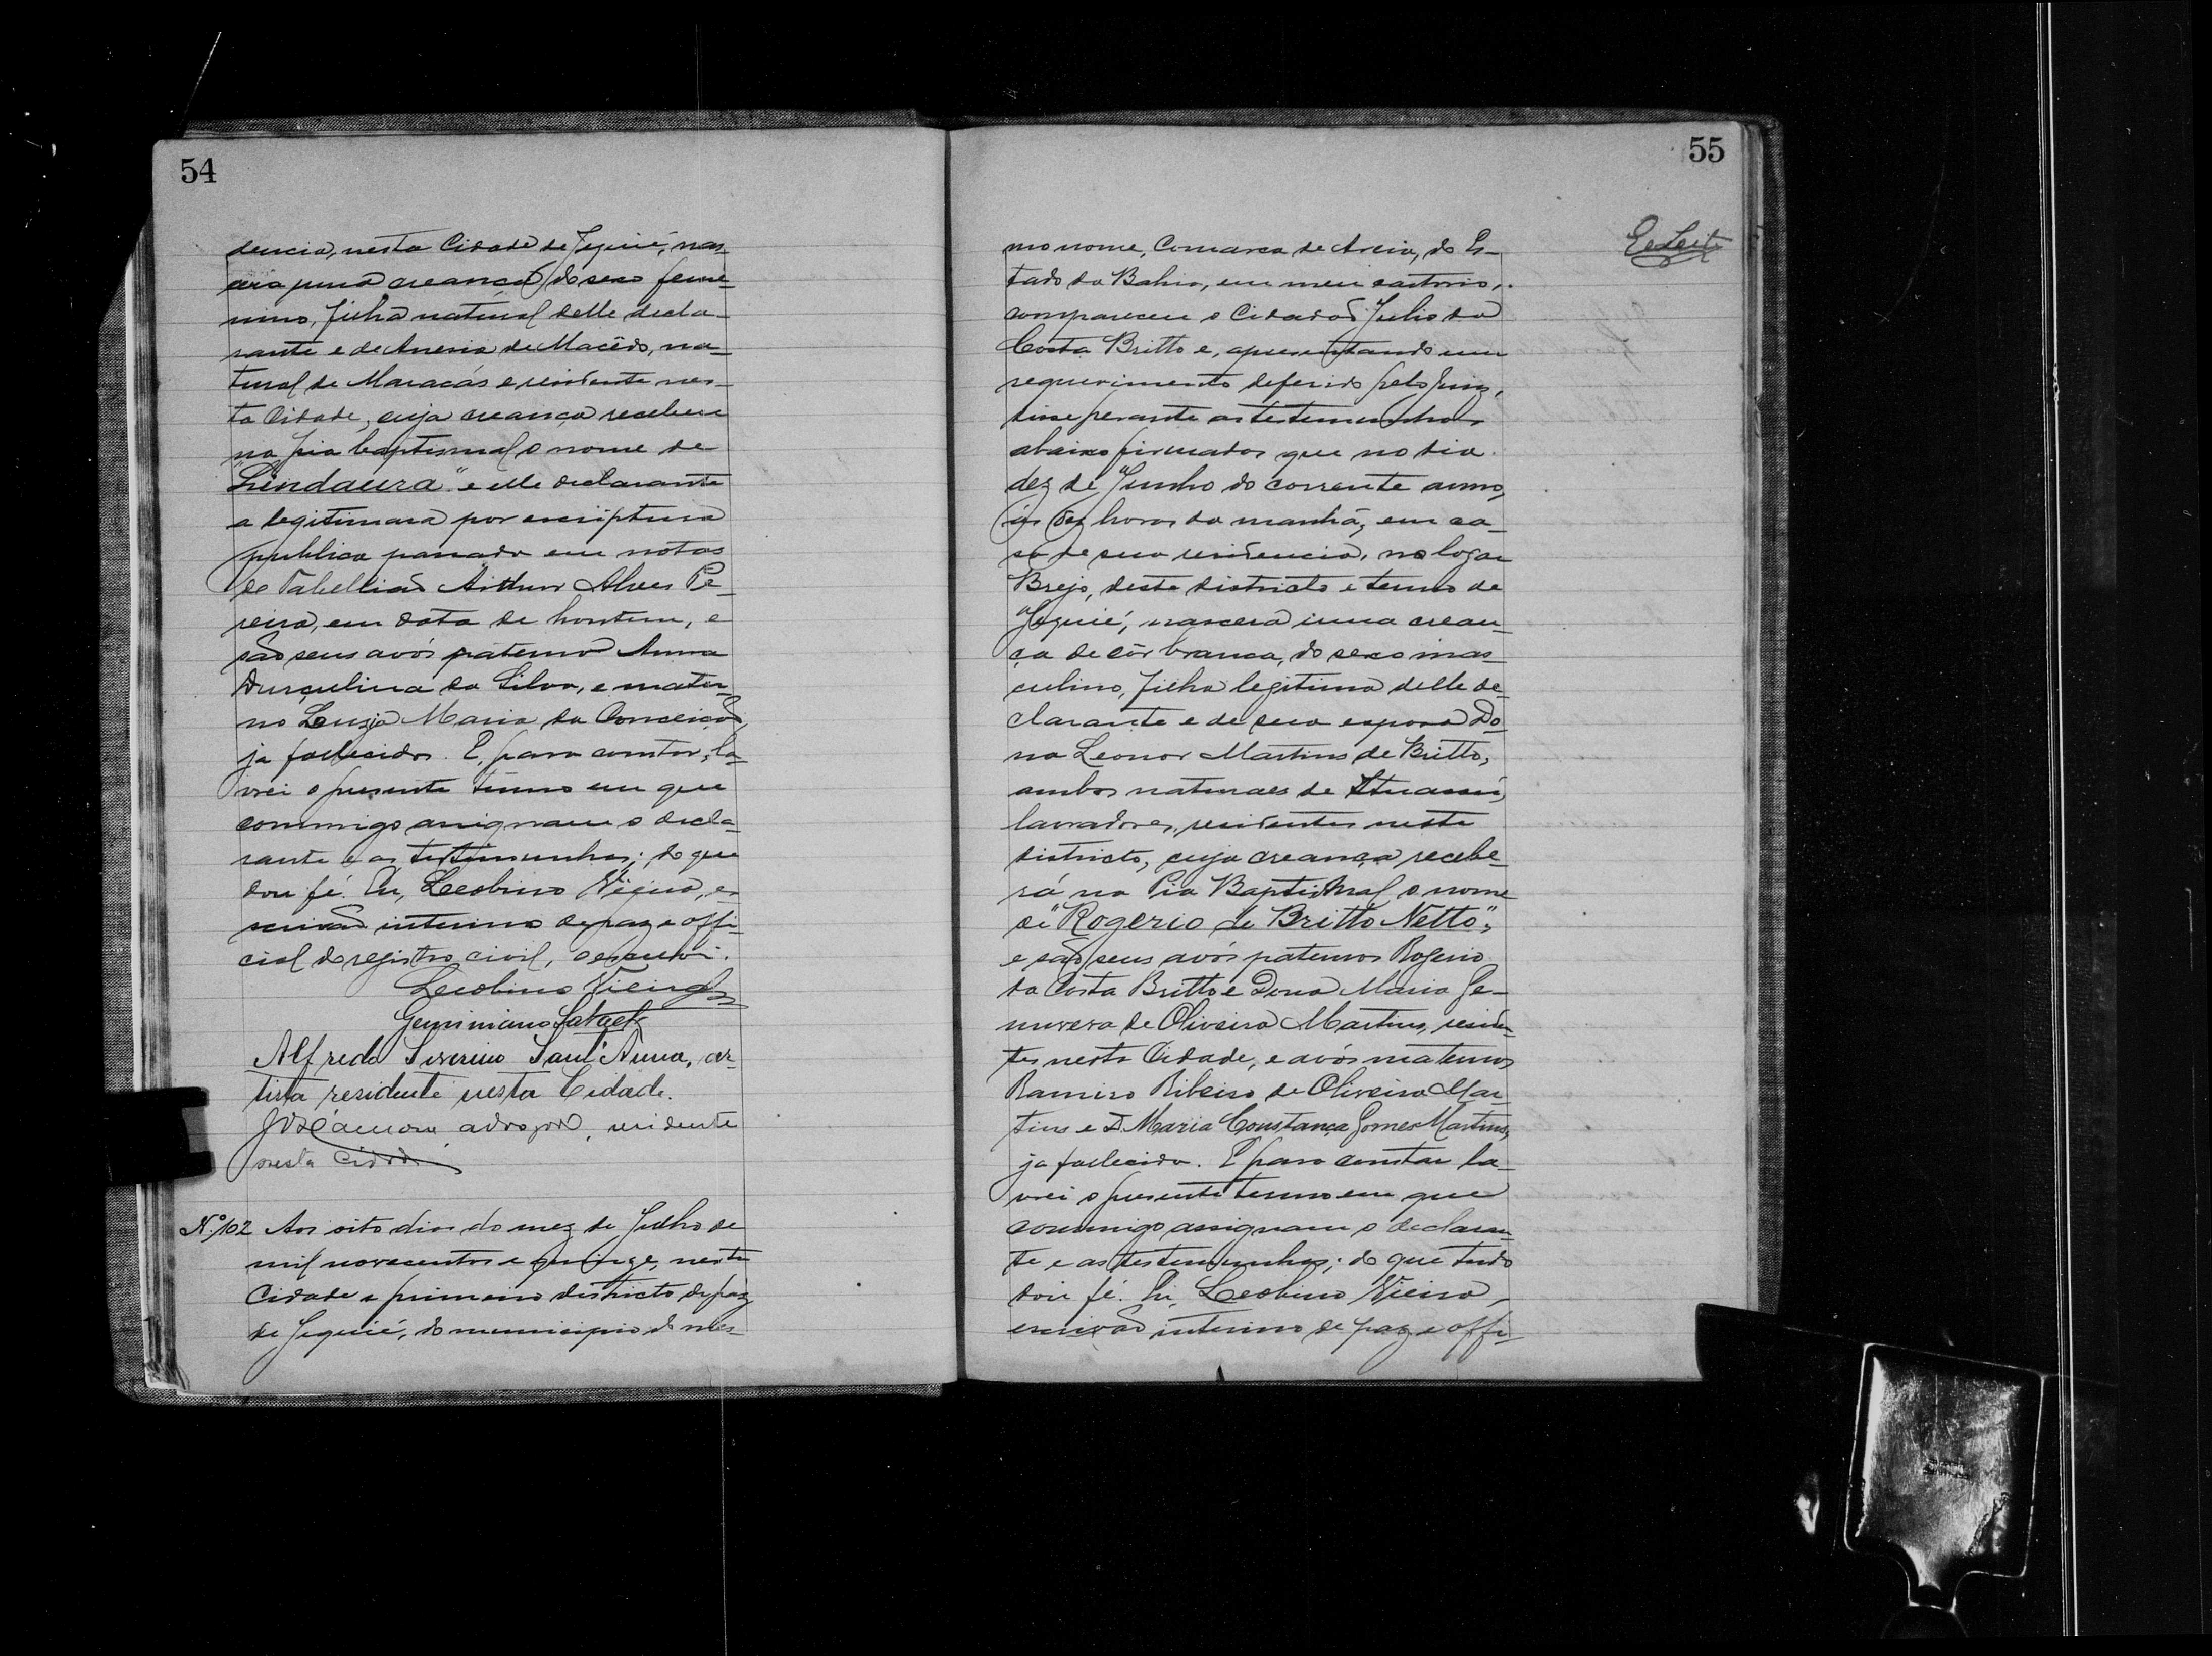 54
dencia, nesta Cidade de Jequié, nas-
cera uma creança do sexo feme-
nino, filha natural delle decla-
rante e de Aneria de Macêdo, na-
tural de Maracás e residente nes-
ta Cidade, cuja creança recebeu
na pia baptismal o nome de
"Lindaura" e elle declarante
a legitimara por escriptura
publica passada em notas
do Tabellião Arthur Alves Pe-
reira, em data de hontem, e
são seus avós paterno Anna
Durçulina da Silva, e mater-
no Luzia Maria da Conceição,
ja fallecidos. E, para constar, la-
vrei o presente termo em que
commigo assignam o decla-
rante e as testemunhas; do que
dou fé. Eu, Leobino Vieira, es-
crivão interino de paz e offi-
cial do registro civil, o escrevi.
Leobino Vieira
Geminiano
Alfredo Severino Sant'Anna, ar-
tista residente nesta Cidade.
advogado, residente
nesta Cidade
N.º 102 Aos oito dias do mez de Julho de
mil novecentos e quinze, nesta
Cidade e primeiro districto de paz
de Jequié, do municipio do mes-
55
mo nome, Comarca de Areia, do Es-
tado da Bahia, em meu cartorio,
compareceu o Cidadão Julio da
Costa Britto e, apresentando um
requerimento deferido pelo Juiz,
disse perante as testemunhas
abaixo firmadas que no dia
dez de Junho do corrente anno,
ás dez horas da manhã, em ca-
sa de sua residencia, no logar
Brejo, deste districto e termo de
Jequié, nascera uma crean-
ça de côr branca, do sexo mas-
culino, filha legitima delle de-
clarante e de sua esposa Do-
na Leonor Martins de Britto,
ambos naturaes de Ituassú,
lavradores, residentes neste
districto, cuja creança recebe-
rá na Pia Baptismal o nome
de "Rogerio de Britto Netto";
e são seus avós paternos Rogerio
da Costa Britto e Dona Maria Ge-
nuvera de Oliveira Martins, residen-
tes nesta Cidade, e avós maternos
Ramiro Ribeiro de Oliveira Mar-
tins e D. Maria Constança Gomes Martins,
ja fallecida. E para constar la-
vrei o presente termo em que
commigo assignam o declaran-
te e as testemunhas; do que tudo
dou fé. Eu, Leobino Vieira,
escrivão interino de paz e offi-